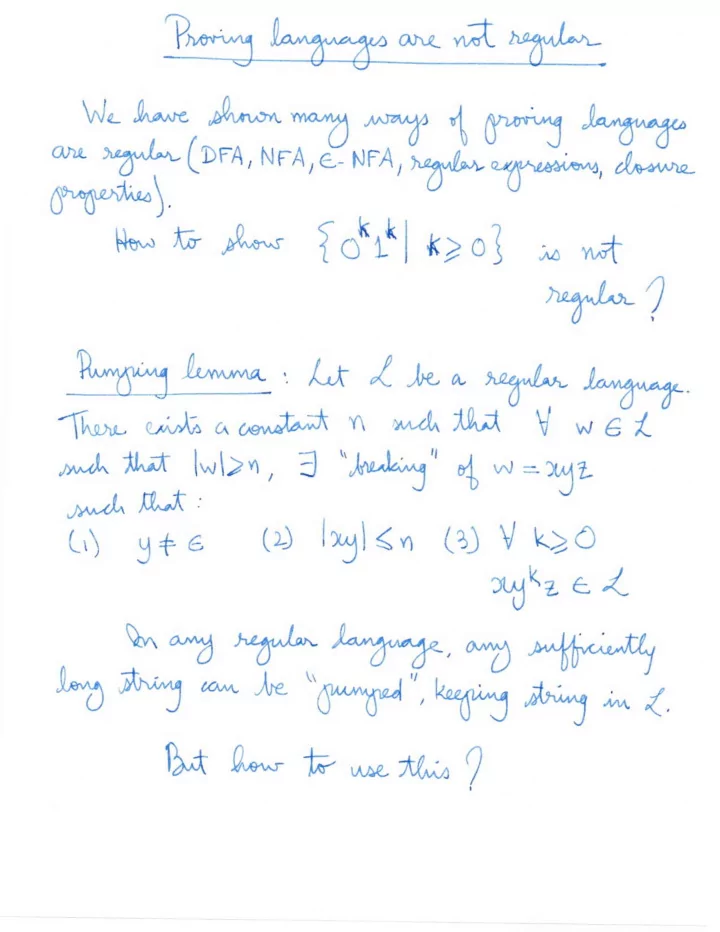 Proving languages are not regular
We have shown many ways of proving languages
are regular (DFA, NFA, ϵ-NFA, regular expressions, closure
properties).
How to show {0ᵏ1ᵏ | k⩾0} is not
regular?
Pumping lemma : Let L be a regular language.
There exists a constant n such that ∀ w ∈ L
such that |w|⩾n, ∃ "breaking" of w = xyz
such that :
(1) y ≠ ϵ (2) |xy| ≤ n (3) ∀ k⩾0
xyᵏz ∈ L
In any regular language, any sufficiently
long string can be "pumped", keeping string in L.
But how to use this?